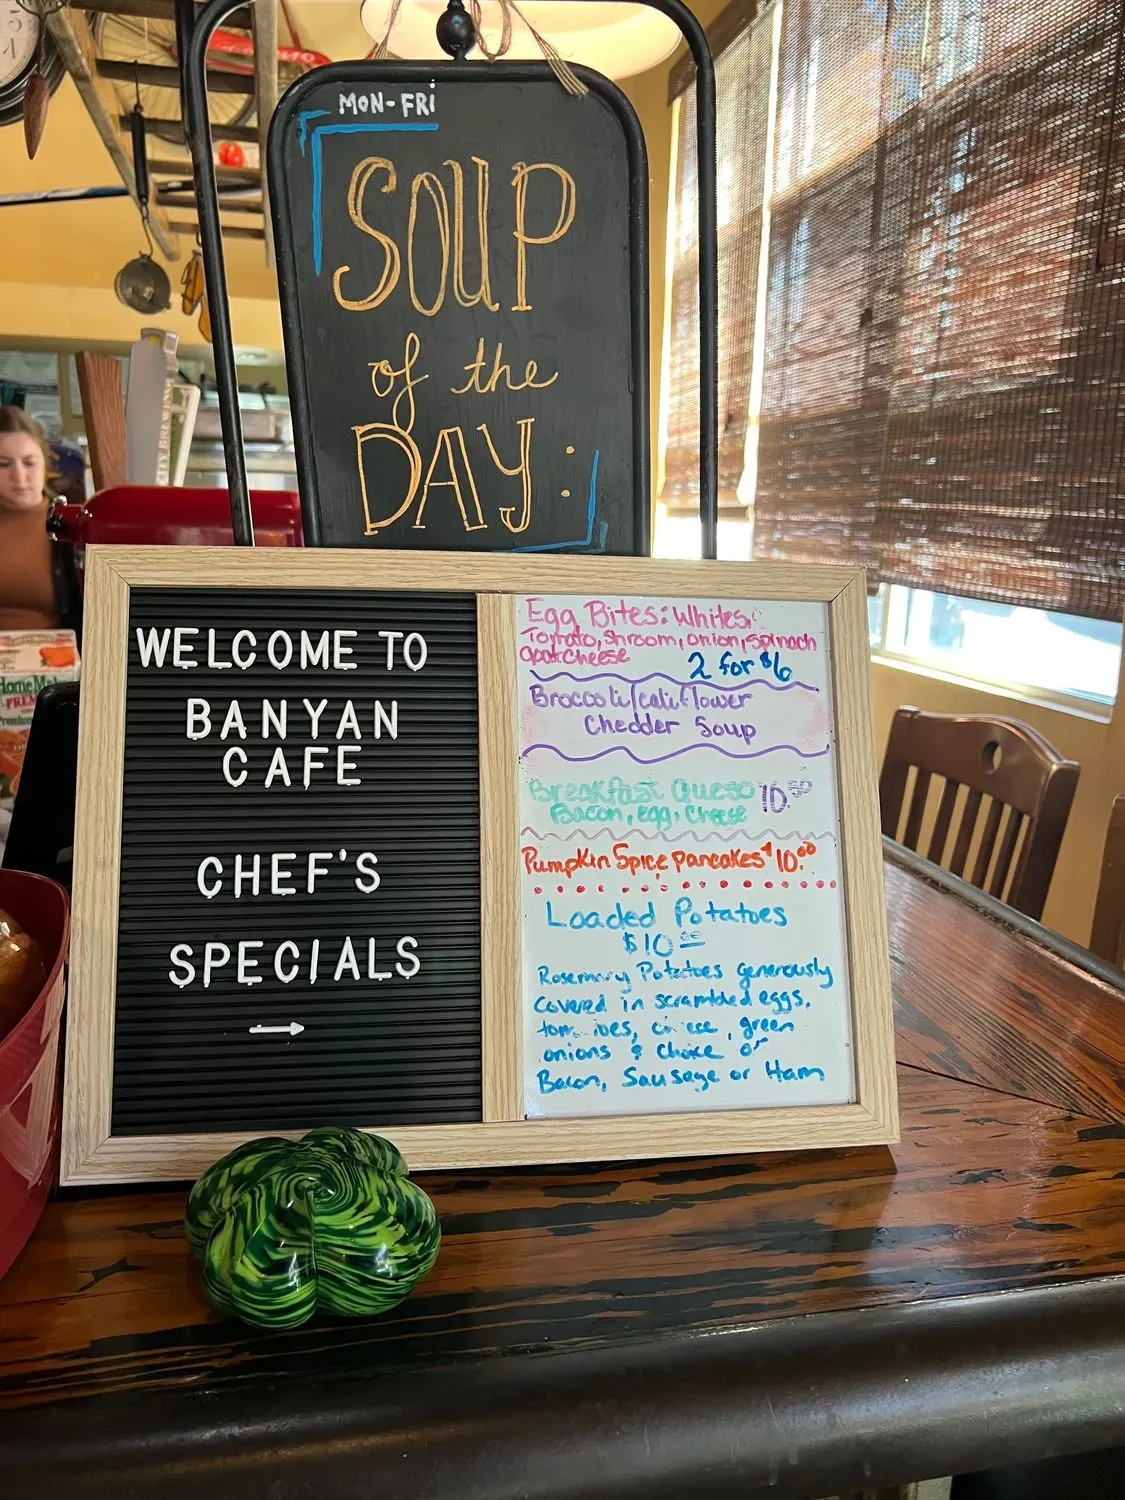 MON-FRi
SOUP
of the
DAY:
WELCOME TO
BANYAN
CAFE
CHEF'S
SPECIALS
Egg Bites: Whites,
Tomato, shroom, onion, spinach
Goat Cheese 2 for $6
Broccoli/califlower
Chedder Soup
Breakfast Queso 10.50
Bacon, Egg, Cheese
Pumpkin Spice pancakes $10.00
Loaded Potatoes
$10.00
Rosemary Potatoes generously
Covered in scrambled eggs,
tomatoes, cheese, green
onions & choice of
Bacon, Sausage or Ham